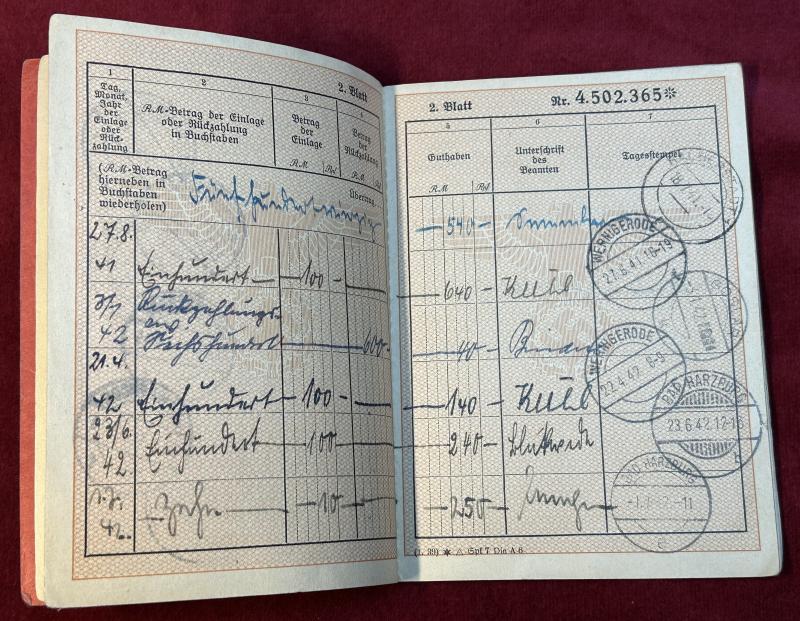 2. Blatt
1
2
3
4
Tag,
Monat,
Jahr
der
Einlage
oder
Rück-
zahlung
RM-Betrag der Einlage
oder Rückzahlung
in Buchstaben
Betrag
der
Einlage
RM Rpf
Betrag
der
Rückzahlung
RM
(RM-Betrag
hierneben in
Buchstaben
wiederholen)
Fünfhundertvierzig
Übertrag
27.8.
41 Einhundert — 100 —
3/1
42
Rückzahlung
Sechshundert — 600 —
21.4.
42 Einhundert — 100 —
23/6.
42 Einhundert — 100 —
1.7.
42. — Zehn — 10 —
2. Blatt Nr. 4.502.365*
5
6
7
Guthaben
RM Rpf
Unterschrift
des
Beamten
Tagesstempel
— 540 —
WERNIGERODE
27.8.41.18-19
— 640 —
— 40 —
WERNIGERODE
22.4.42. 8-9
— 140 —
BAD HARZBURG
23.6.42.12-16
— 240 —
BAD HARZBURG
-1.7.42.-11
c
— 250 —
(1. 39) * △ Spf 7 Din A 6